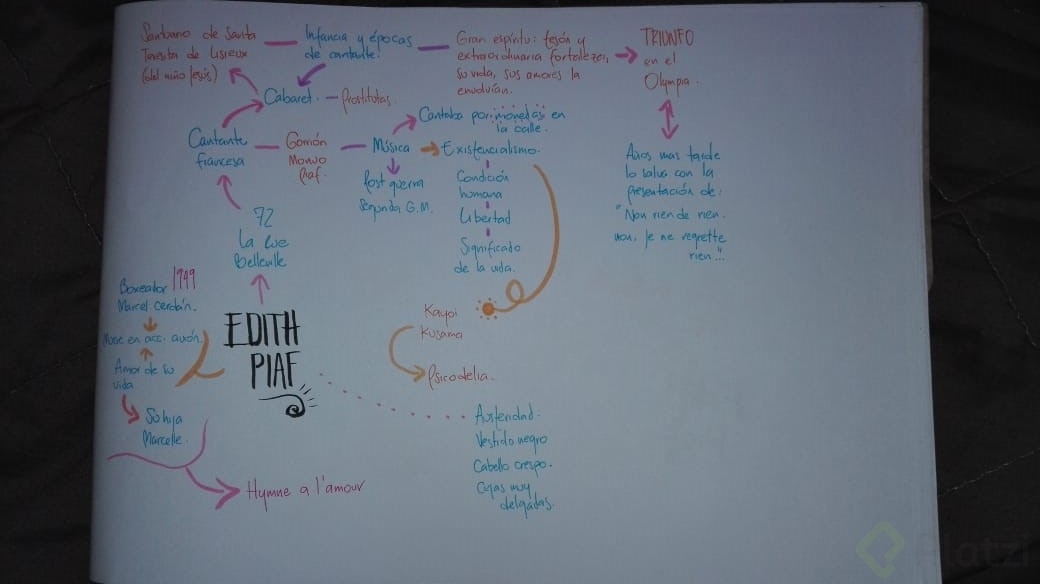 Santuario de Santa
Teresita de Lisieux
(del niño Jesús)
Infancia y épocas
de cantante.
Gran espíritu: tesón y
extraordinaria fortaleza,
su vida, sus amores la
envolvían.
TRIUNFO
en el
Olympia.
Cabaret.
Prostitutas.
Cantaba por monedas en
la calle.
Cantante
francesa
Gomón
Monro
Piaf.
Música
Existencialismo.
Post guerra
Segunda G.M.
Condición
humana
Libertad
Significado
de la vida.
Años mas tarde
lo salva con la
presentación de:
"Non rien de rien.
non, Je ne regrette
rien..."
72
La Rue
Belleville
Boxeador 1949
Marcel Cerdán.
Muere en acc. avión.
Amor de su
vida
EDITH
PIAF
Kayoi
Kusama
Psicodelia.
Su hija
Marcelle.
Hymne a l'amour
Austeridad.
Vestido negro
Cabello crespo.
Cejas muy
delgadas.
Platzi